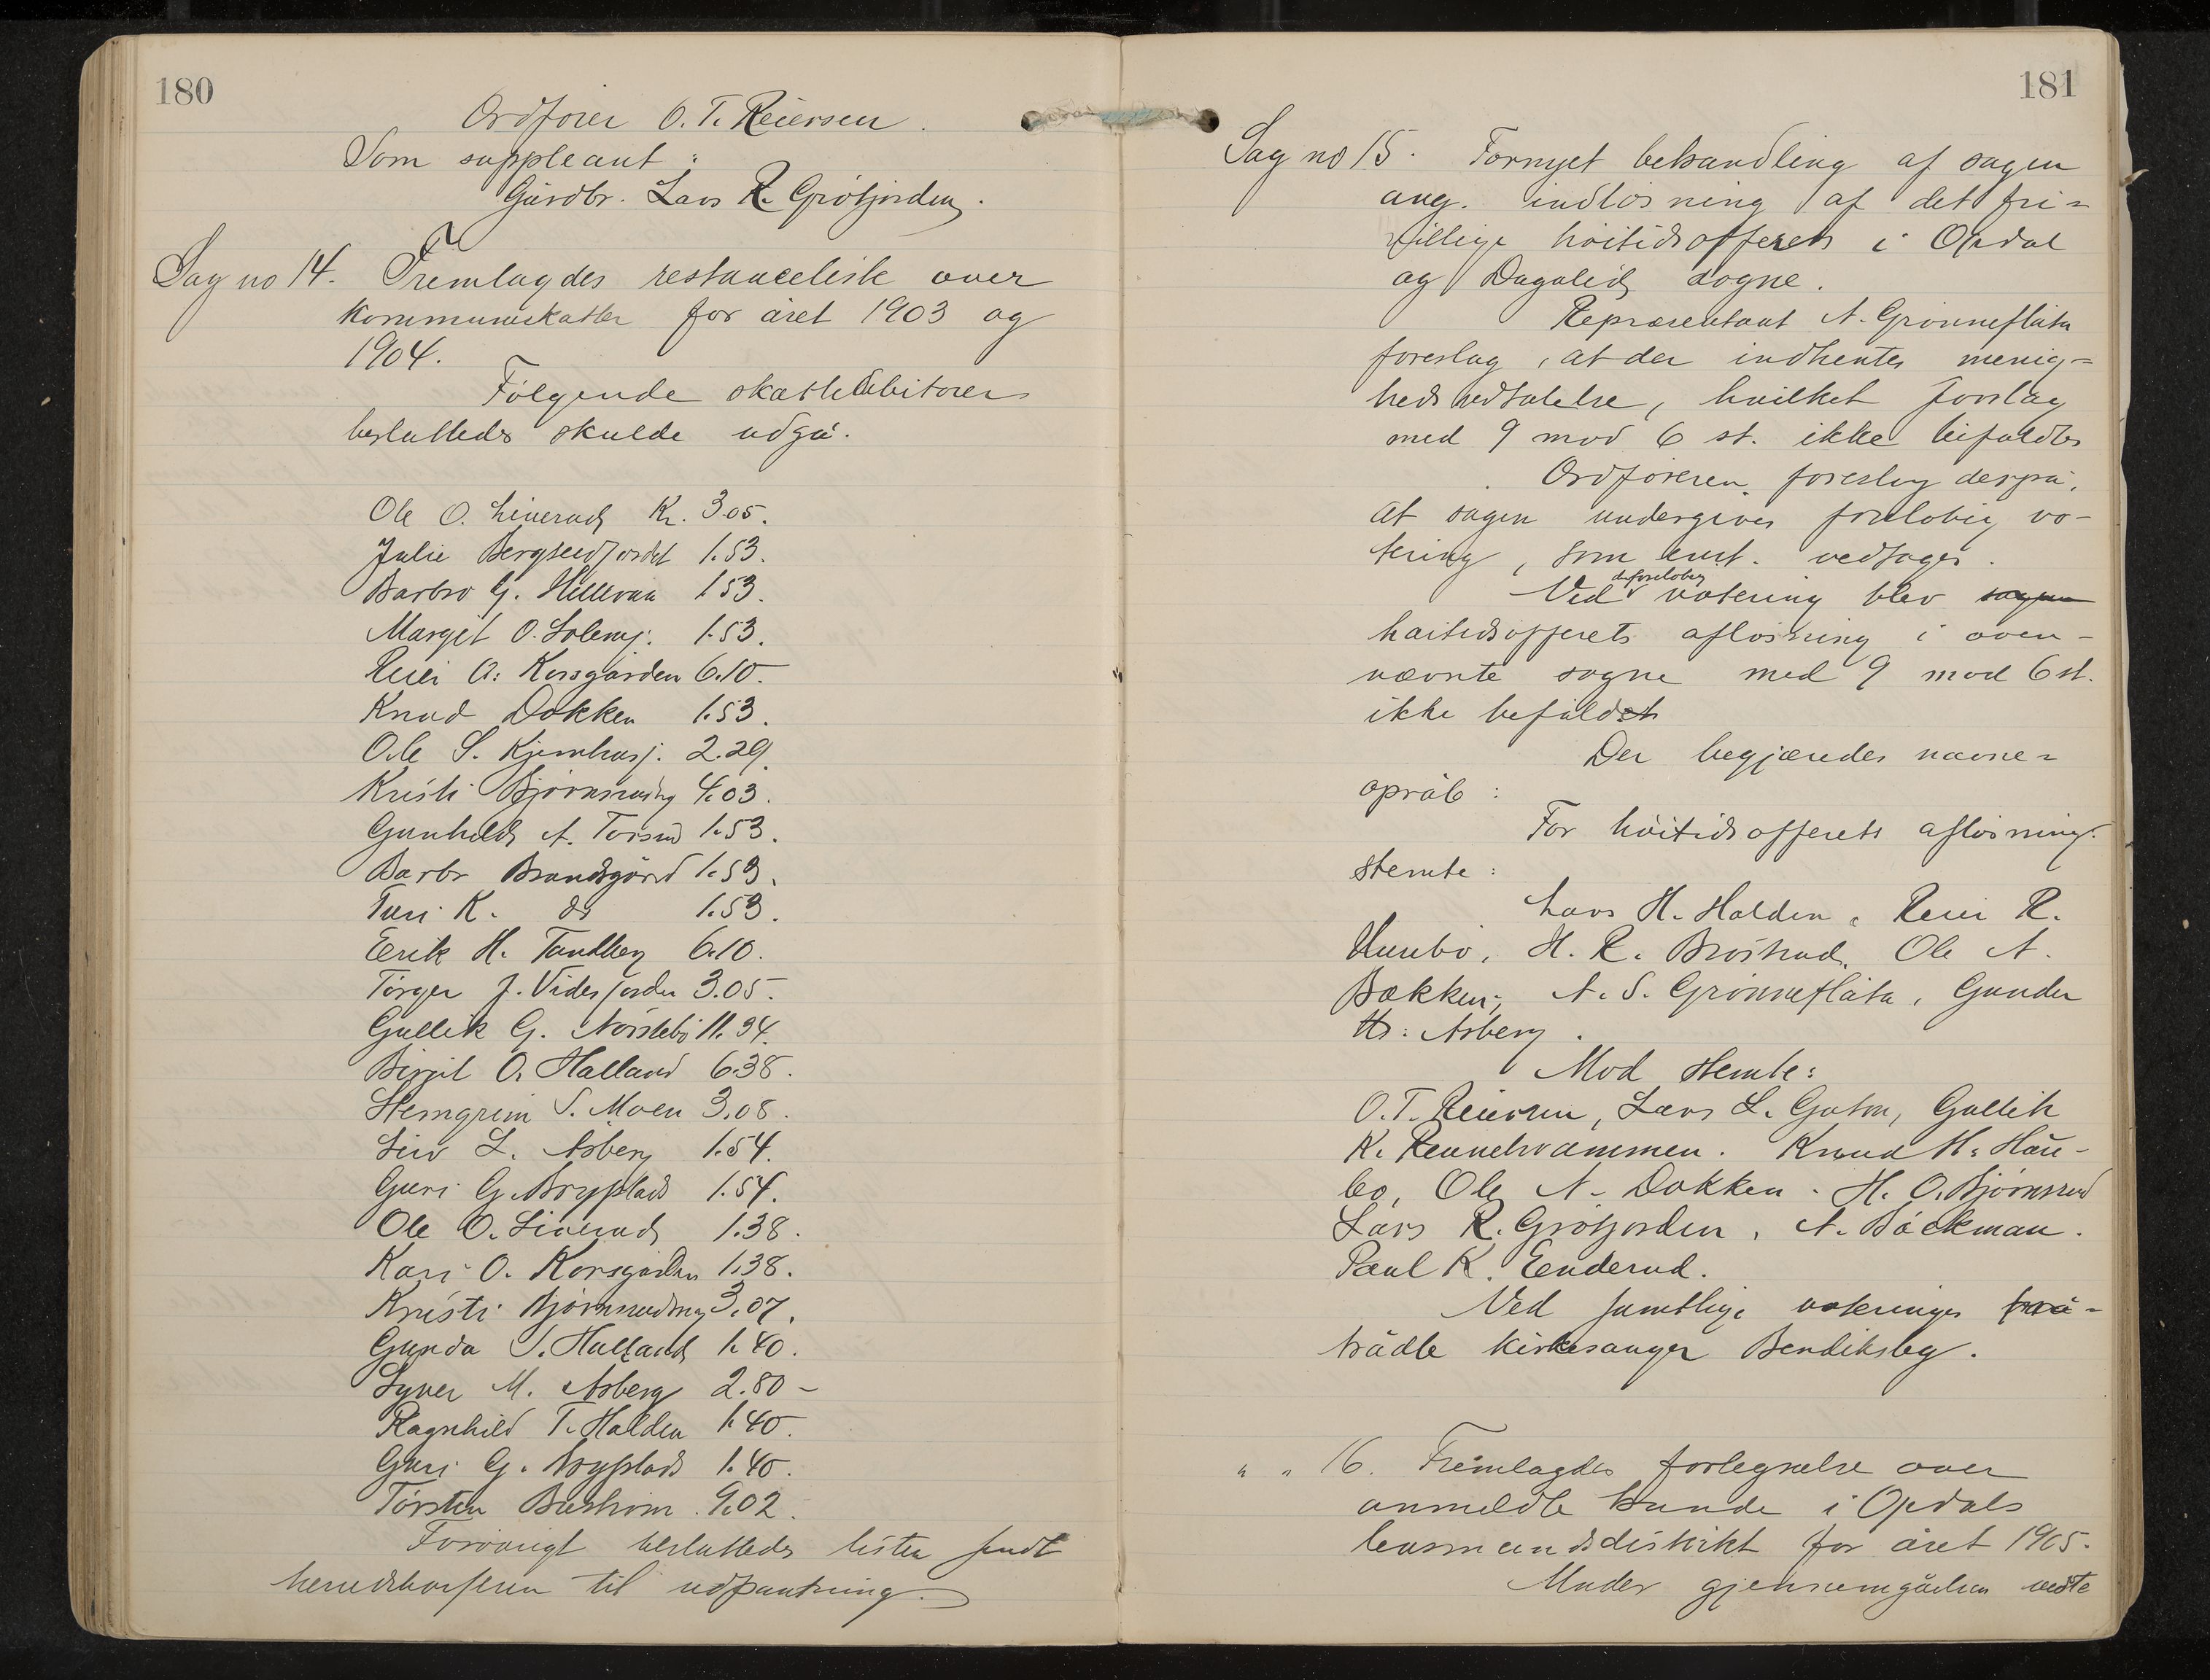 180
Ordfører O. T. Reiersen.
Som suppleant:
Gårdbr. Lars R. Grötjorden.
Sag no 14. Fremlagdes restanceliste over
kommuneskatter for året 1903 og
1904.
Følgende skattedebitorer
besluttedes skulde udgå.
Ole O. Liverud Kr. 3.05.
Julie Bergseidjordet 1.53.
Barbro G. 1.53.
Marget O. 1.53.
Reier O. Korsgården 6.10.
Knud Dokken 1.53.
Ole S. Kjemhusj. 2.29.
Kristi Bjørnsrudeng 4.03.
Gunhild A. Torsrud 1.53.
Barbr Brandsgård 1.53.
Turi K. do 1.53.
Eerik H. Tandberg 6.10.
Torger J. Videsjorden 3.05.
Gullik G. Nørstebø 11.94.
Birgit O. Halland 6.38.
Hemgrim S. Moen 3.08.
Liv L. Åsberg 1.54.
Guri G. Bryplads 1.54.
Ole O. Liverud 1.38.
Kari O. Korsgården 1.38.
Kristi Bjørnsrudeng 3.07.
Gunda S. Halland 1.40.
Syver M. Åsberg 2.80 -
Ragnhild T. Halden 1.40.
Guri G. Bryplads 1.40.
Torsten Buström 9.02.
Forøvrigt besluttedes listen sendt
herredskasseren til udpantning.
181
Sag no 15. Fornyet behandling af sagen
ang. indløsning af det fri=
villige høitidsoffer i Opdal
og Dagalid sogne.
Repræsentant N. Grønneflåta
foreslag, at der indhentes menig=
hedsudtalelse, hvilket forslag
med 9 mod 6 st. ikke bifaldtes
Ordføreren foreslog derpå,
at sagen undergives foreløbig vo-
tering, som enst. vedtages.
Ved d. foreløbig votering blev sagen
høitidsofferets afløsning i oven-
nævnte sogne med 9 mod 6 st.
ikke befaldet
Der begjæredes navne=
opråb:
For høitidsofferets afløsning
stemte:
Lars H. Halden, Reier R.
Uuebø, H. R. Brøstrud, Ole A.
Bækken, N. S. Grønneflåta, Gunder
Hr. Åsberg.
Mod stemte:
O. T. Reiersen, Lars L. Gaton, Gullik
K. Rennehvammen. Knud H. Hau-
bo, Ole N. Dokken. H. O. Bjørnsrud
Lars R. Grötjorden, A. Bäckman.
Paul K. Eenderud.
Ved samtlige voteringer frå-
trådte kirkesanger Bendiksby.
" " 16. Fremlagdes fortegnelse over
anmeldte hunde i Opdals
lensmandsdistrikt for året 1905.
Under gjennemgåelsen vedto